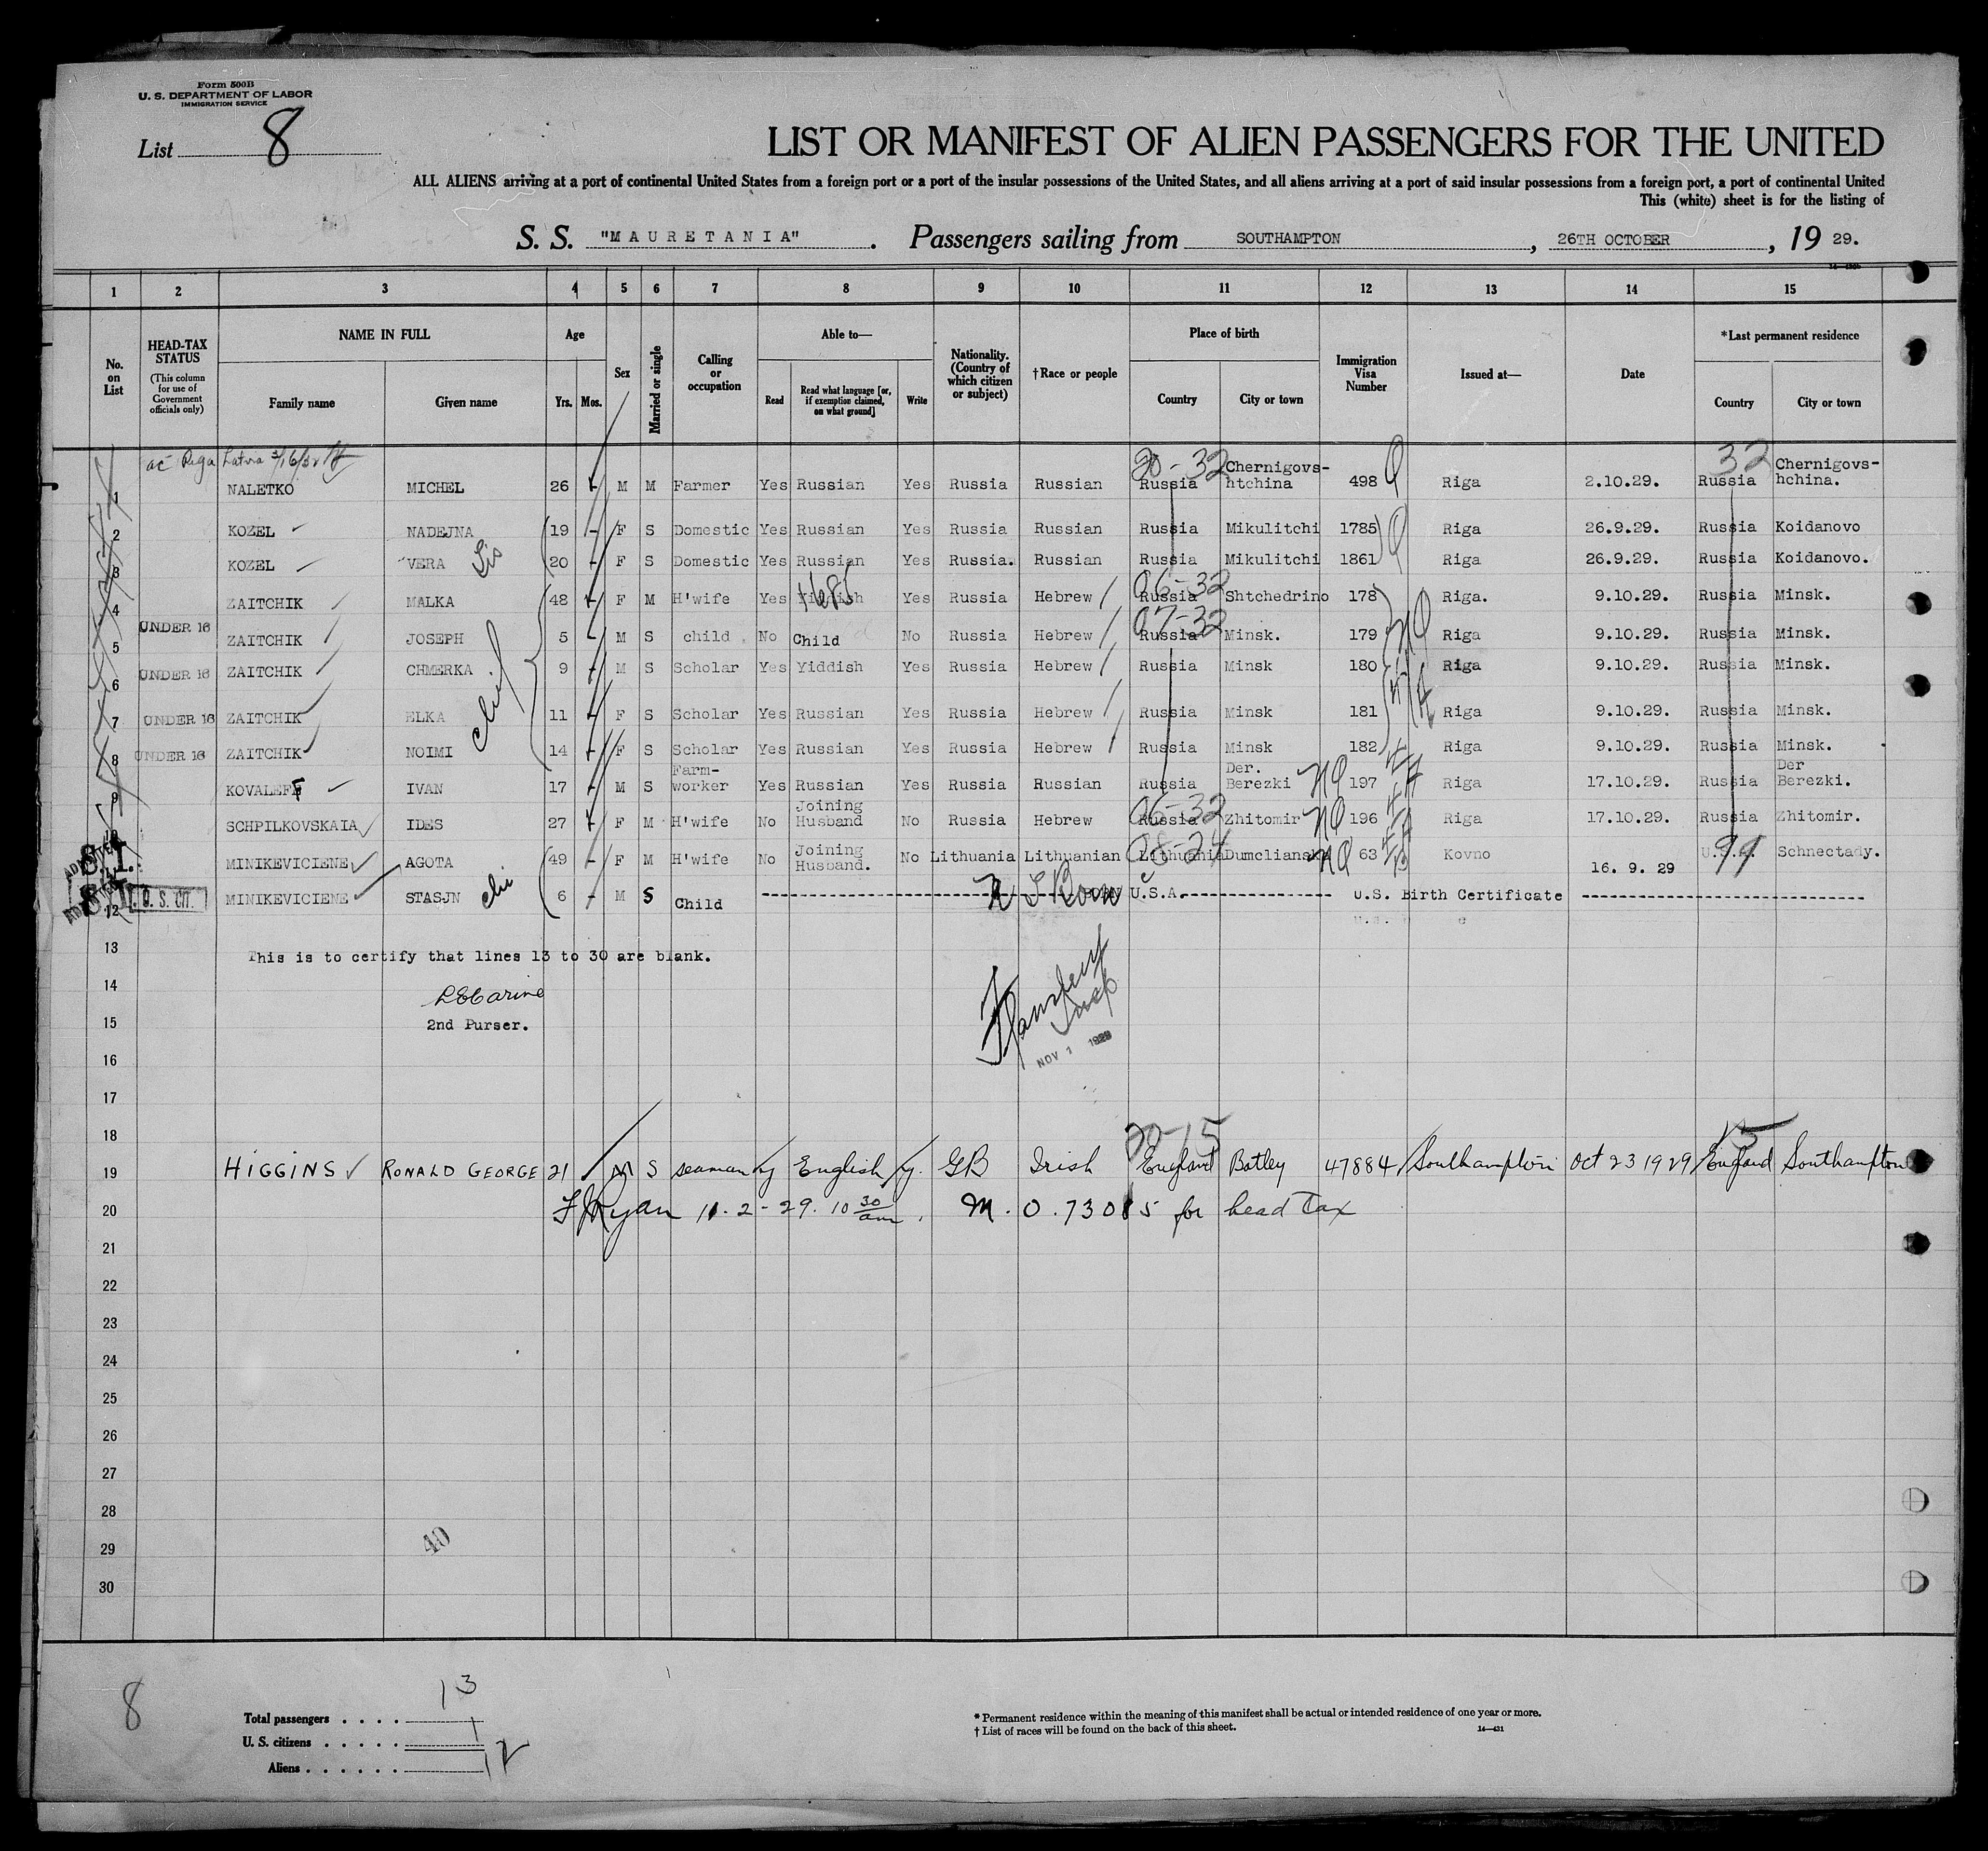 Form 500B
U. S. DEPARTMENT OF LABOR
IMMIGRATION SERVICE
List 8
LIST OR MANIFEST OF ALIEN PASSENGERS FOR THE UNITED
ALL ALIENS arriving at a port of continental United States from a foreign port or a port of the insular possessions of the United States, and all aliens arriving at a port of said insular possessions from a foreign port, a port of continental United
This (white) sheet is for the listing of
S. S. "MAURETANIA". Passengers sailing from SOUTHAMPTON, 26TH OCTOBER, 19 29.
1 2 3 4 5 6 7 8 9 10 11 12 13 14 15
No. on List
HEAD-TAX STATUS (This column for use of Government officials only)
NAME IN FULL
Family name Given name
Age
Yrs. Mos.
Sex
Married or single
Calling or occupation
Able to—
Read
Read what language [or, if exemption claimed, on what ground]
Write
Nationality. (Country of which citizen or subject)
†Race or people
Place of birth
Country City or town
Immigration Visa Number
Issued at—
Date
*Last permanent residence
Country City or town
Riga Latvia 20-32 32
1 NALETKO MICHEL 26 M M Farmer Yes Russian Yes Russia Russian Russia Chernigovs-htchina 498 Riga 2.10.29. Russia Chernigovs-hchina.
2 KOZEL NADEJNA 19 - F S Domestic Yes Russian Yes Russia Russian Russia Mikulitchi 1785 Riga 26.9.29. Russia Koidanovo
3 KOZEL VERA Sis 20 - F S Domestic Yes Russian Yes Russia. Russian Russia Mikulitchi 1861 Riga 26.9.29. Russia Koidanovo.
06-32
4 ZAITCHIK MALKA 48 - F M H'wife Yes Yiddish Yes Russia Hebrew Russia Shtchedrino 178 Riga. 9.10.29. Russia Minsk.
07-32
5 UNDER 16 ZAITCHIK JOSEPH 5 - M S child No Child No Russia Hebrew Russia Minsk. 179 Riga 9.10.29. Russia Minsk.
6 UNDER 16 ZAITCHIK CHMERKA 9 - M S Scholar Yes Yiddish Yes Russia Hebrew Russia Minsk 180 Riga 9.10.29. Russia Minsk.
7 UNDER 16 ZAITCHIK ELKA 11 - F S Scholar Yes Russian Yes Russia Hebrew Russia Minsk 181 Riga 9.10.29. Russia Minsk.
8 UNDER 16 ZAITCHIK NOIMI 14 - F S Scholar Yes Russian Yes Russia Hebrew Russia Minsk 182 Riga 9.10.29. Russia Minsk.
9 KOVALEFF IVAN 17 - M S Farm-worker Yes Russian Yes Russia Russian Russia Der. Berezki NQ 197 Riga 17.10.29. Russia Der Berezki.
06-32
10 SCHPILKOVSKAIA IDES 27 - F M H'wife No Joining Husband No Russia Hebrew Russia Zhitomir NQ 196 Riga 17.10.29. Russia Zhitomir.
08-24 99
S.I. MINIKEVICIENE AGOTA 49 - F M H'wife No Joining Husband. No Lithuania Lithuanian Lithuania NQ 63 Kovno 16. 9. 29 U.S.A. Schnectady.
12 S.I. U. S. CIT. MINIKEVICIENE STASJN 6 - M S Child Born U.S.A. U.S. Birth Certificate
13
This is to certify that lines 13 to 30 are blank.
14
15 2nd Purser.
Transferred
NOV 1 1929
16
17
18
20-15 15
19 HIGGINS RONALD GEORGE 21 M S seaman y English y. GB Irish England Batley 47884 Southampton Oct 23 1929 England Southampton
20 Ryan 11-2-29. 10 30 am. M.O. 73015 for head Tax
21
22
23
24
25
26
27
28
29
40
30
8
Total passengers 13
U. S. citizens 1
Aliens 12
* Permanent residence within the meaning of this manifest shall be actual or intended residence of one year or more.
† List of races will be found on the back of this sheet.
14—431